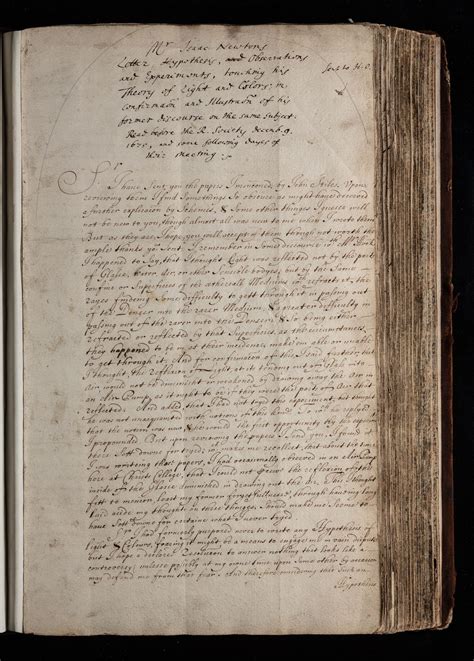 Mr. Isaac Newtons
Letter, Hypothesis, and Observations
and Experiments, touching his
Theory of Light and Colors; in
confirmation and Illustration of his
former discourse on the same subject.
Read before the R. Society decemb. 9.
1675, and some following dayes of
their Meeting.
Sent to H. O.
Sr.
I have sent you the papers I mentioned, by John Stiles. Upon
reviewing them I find some things so obscure as might have deserved
a further explication by schemes, & some other things I guess will
not be new to you, though almost all was new to me when I wrote them
But as they are, I hope you will accept of them, though not worth the
ample thanks you sent. I remember in some discourse with Mr. Hook
I happened to say, that I thought Light was reflected not by the parts
of Glass, water, air, or other sensible bodyes, but by the same
confine or superficies of the aethereall Mediums which refract it, the
rayes finding some difficulty to get through it in passing out
of the denser into the rarer Medium, & a greater difficulty in
passing out of the rarer into the denser, & so being either
refracted or reflected by that superficies, as the circumstances
they happened to be in at their incidence make them able or unable
to get through it. And for confirmation of this I said further, that
I thought the reflexion of Light at its tending out of Glass into
Air would not be diminisht or weakened by drawing away the Air in
an Air Pump, as it ought to be if they were the parts of Air that
reflected: And added, that I had not tryed this experiment, but thought
he was not unacquainted with notions of this kind. To which he replyed
that the notion was new, & he would the first opportunity try the experiment
I propounded. But upon reviewing the papers I send you, I found it
there sett down for tryed; which makes me recollect, that about the time
I was writing those papers, I had occasionally observed in an Air Pump
here at Christ College, that I could not perceive the reflexion of the
inside of the Glass diminished in drawing out the Air. This I thought
fitt to mention, least my former forgetfullness, through having long
laid aside my thoughts on these things, should make me seem to
have sett down for certaine what I never tryed.
Sr I had formerly purposed never to write any Hypothesis of
Light & Colours, fearing it might be a means to engage me in vain disputes
but I hope a declared resolution to answer nothing that looks like a
controversy, unless possibly at my own time upon some other by occasion
may defend me from that fear. And therefore considering that such an
Hypothesis